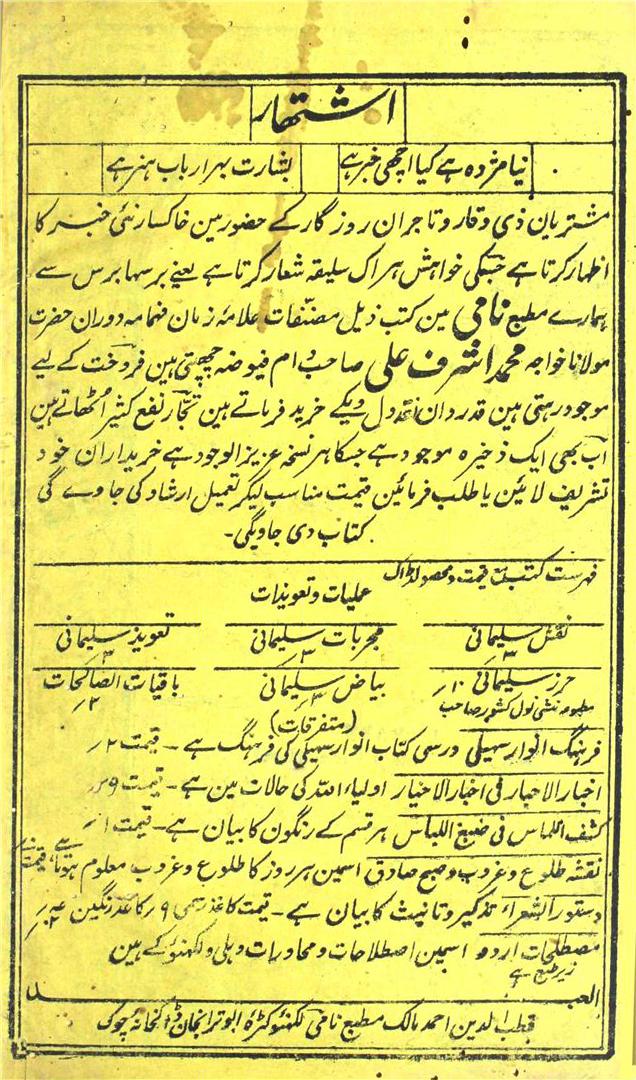 اشتہار
نیا مژدہ ہے کیا اچھی خبر ہے
بشارت بہر ارباب ہنر ہے
مشتریان ذی وقار و تاجران روزگار کے حضور مین خاکسار نئی خبر کا
اظہار کرتا ہے جسکی خواہش ہر اک سلیقہ شعار کرتا ہے یعنے برسہا برس سے
ہمارے مطبع نامی مین کتب ذیل مصنفات علامۂ زمان فہامہ دوران حضرت
مولانا خواجہ محمد اشرف علی صاحب دام فیوضہ چھپتی ہین فروخت کے لیے
موجود رہتی ہین قدردان نقد دل دیکے خرید فرماتے ہین تجار نفع کثیر اٹھاتے ہین
اب بھی ایک ذخیرہ موجود ہے جسکا ہر نسخہ عزیز الوجود ہے خریداران خود
تشریف لائین یا طلب فرمائین قیمت مناسب لیکر تعمیل ارشاد کی جاوے گی
کتاب دی جاویگی۔
فہرست کتب مع قیمت و محصولڈاک
عملیات و تعویذات
نقش سلیمانی ۳؍ مجربات سلیمانی ۳؍ تعویذ سلیمانی ۳؍
حرز سلیمانی ۱۰؍ بیاض سلیمانی ۳؍ باقیات الصالحات ۲؍
مطبوعہ منشی نول کشور صاحب
(متفرقات)
فرہنگ انوار سہیلی درسی کتاب انوار سہیلی کی فرہنگ ہے ۔ قیمت ۲؍
اخبار الاحبار فی اخبار الاخیار اولیاء اللہ کی حالات مین ہے ۔ قیمت ۹؍
کشف اللماس فی صبغ اللباس ہر قسم کے رنگون کا بیان ہے ۔ قیمت ۱؍
نقشہ طلوع و غروب و صبح صادق اسمین ہر روز کا طلوع و غروب معلوم ہوتا ہے قیمت
دستور الشعراء تذکیر و تانیث کا بیان ہے ۔ قیمت کاغذ رسمی ۹؍ کاغذ رنگین
مصطلحات اردو اسمین اصطلاحات و محاورات دہلی و لکھنؤ کے ہین
زیر طبع ہے
العبد
قطب الدین احمد مالک مطبع نامی لکھنؤ کٹرۂ ابو تراب خان ڈاکخانہ چوک